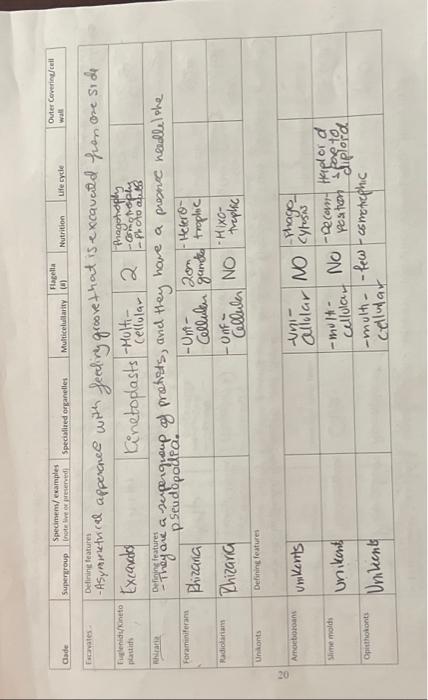 Clade
Supergroup
Specimens/ examples
(note live or preserved)
Specialized organelles
Multicellularity
Flagella
(#)
Nutrition
Life cycle
Outer Covering/cell
wall
Excavates
Defining features
-Asymmetrical apperance with feeding groove that is excavated from one side
Euglenids/Kineto
plastids
Excavates
Kinetoplasts
-Multi-
cellular
2
-Phagotrophy
-osmotrophy
-Photo
Rhizaria
Defining features
-They are a supergroup of protists, and they have a needle like
pseudopodia.
Foraminiferans
Rhizaria
-Uni-
Cellular
-Hetero-
trophic
Radiolarians
Rhizaria
-Uni-
Cellular
NO
-Mixo-
trophic
Unikonts
Defining features
Amoebozoans
Unikonts
-uni-
cellular
NO
-Phago-
cytosis
Slime molds
Unikont
-multi-
cellular
No
-Decom-
position
haploid
to
diploid
Opisthokonts
Unikonts
-multi-
cellular
-few
-osmotrophic
20